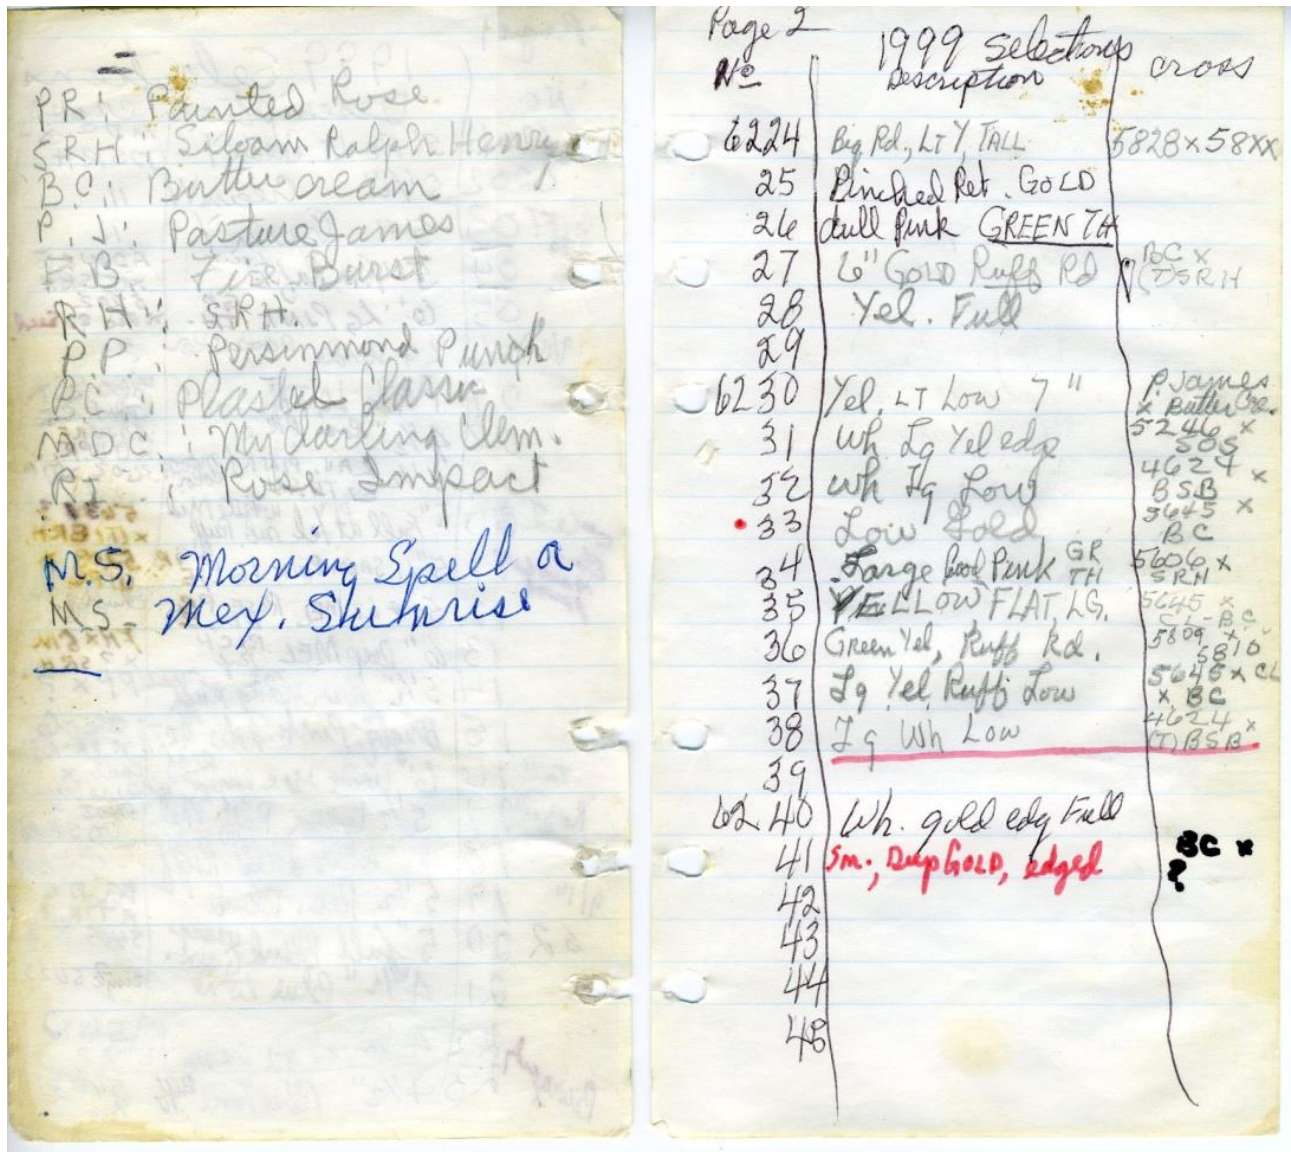 PR: Painted Rose.
SRH: Siloam Ralph Henry
B.C. Butter cream
P. J. Pasture James
F B Fier Burst
RH: SRH.
P.P.: Persinmond Punch
PC: Plastel Classic
M.D.C.: My darling Clem.
RI: Rose Impact
M.S. Morning Spell or
M.S- Mex. Sunrise
Page 2
1999 Selections
No Description cross
6224 Big Rd., LT Y, TALL 5828 x 58xx
25 Pinched Pet. GOLD
26 dull Pink GREEN TH
27 6" GOLD Ruff Rd BC x
(T) SRH
28 Yel. Full
29
6230 Yel. LT Low 7" P. James
x Butter Cre.
31 Wh Lg Yel edge 5246 x
SOS
32 Wh Lg Low 4624 x
BSB
33 Low Gold 5645 x
BC
34 Large Good Pink GR TH 5606 x
SRH
35 YELLOW FLAT, LG. 5645 x
CL-BC
36 Green Yel, Ruff Rd. 5809 x
5810
37 Lg Yel Ruff Low 5645 x CL
x BC
38 Lg Wh Low 4624 x
(T) BSB
39
6240 Wh. gold edg Full
41 Sm., Deep GOLD, edged BC x
?
42
43
44
45